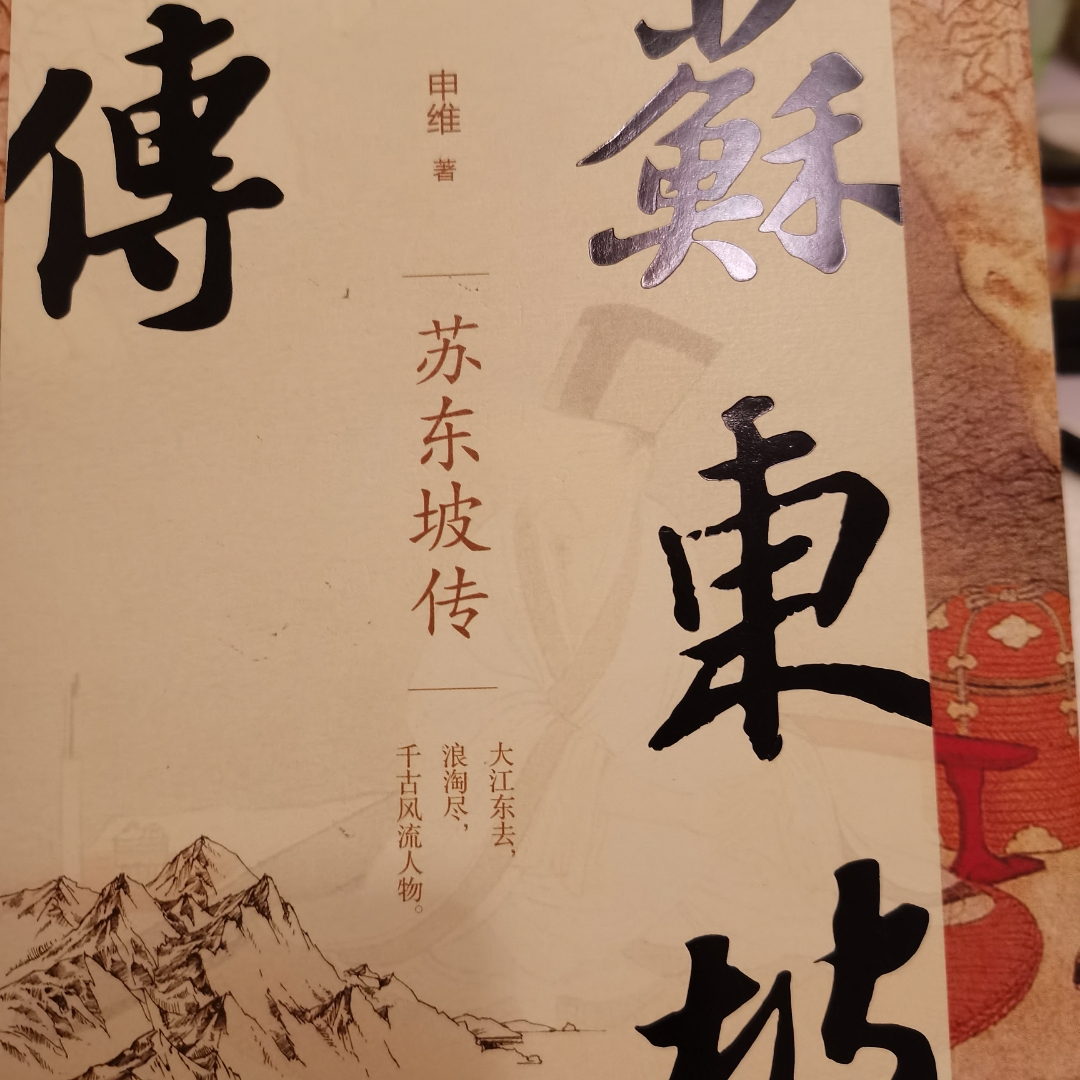 蘇東坡
傳
申维 著
苏东坡传
大江东去，
浪淘尽，
千古风流人物。